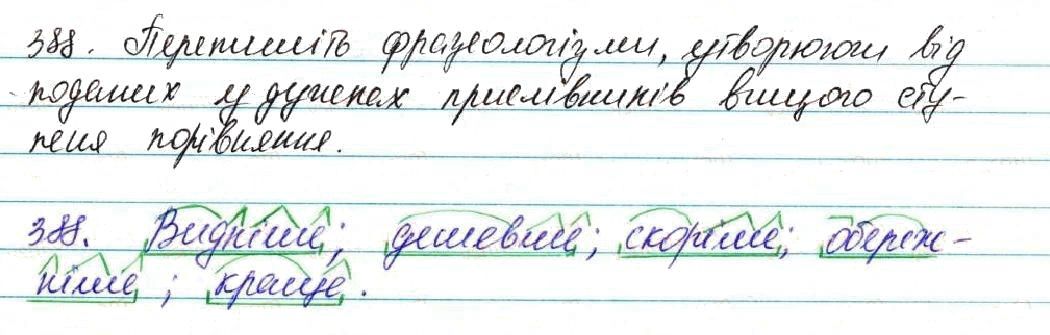 388. Перепишіть фразеологізми, утворюючи від
поданих у дужках прислівників вищого сту-
пеня порівняння.
388. Видніше; дешевше; скоріше; обереж-
ніше; краще.